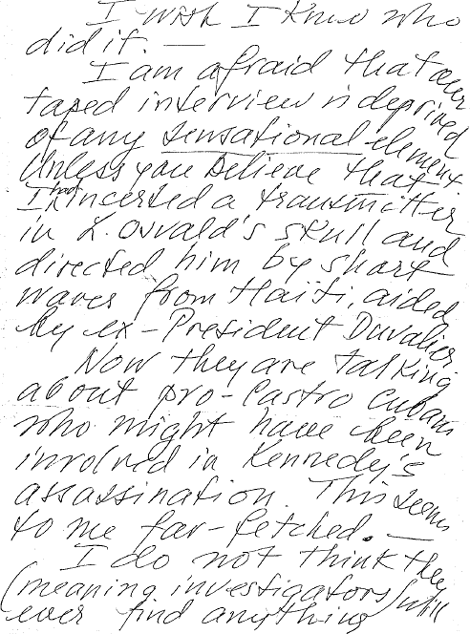 I wish I knew who
did it. —
I am afraid that our
taped interview is deprived
of any sensational element.
Unless you believe that
I had incerted a transmitter
in L. Osvald's skull and
directed him by short
waves from Haïti, aided
by ex-President Duvalier.
Now they are talking
about pro-Castro Cubans
who might have been
involved in Kennedy's
assassination. This seems
to me far-fetched. —
I do not think they
(meaning investigators) will
ever find anything